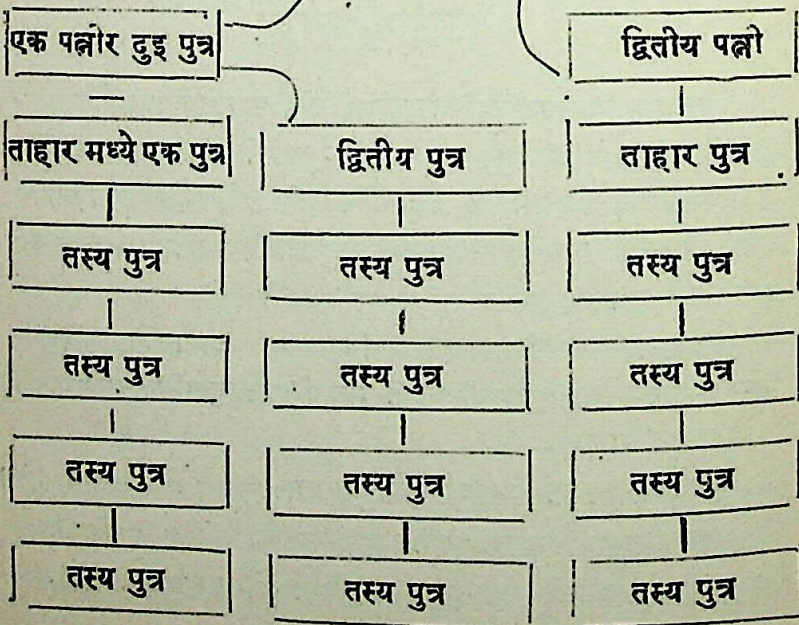 एक पत्नीर दुइ पुत्र द्वितीय पत्नी
ताहार मध्ये एक पुत्र द्वितीय पुत्र ताहार पुत्र
तस्य पुत्र तस्य पुत्र तस्य पुत्र
तस्य पुत्र तस्य पुत्र तस्य पुत्र
तस्य पुत्र तस्य पुत्र तस्य पुत्र
तस्य पुत्र तस्य पुत्र तस्य पुत्र